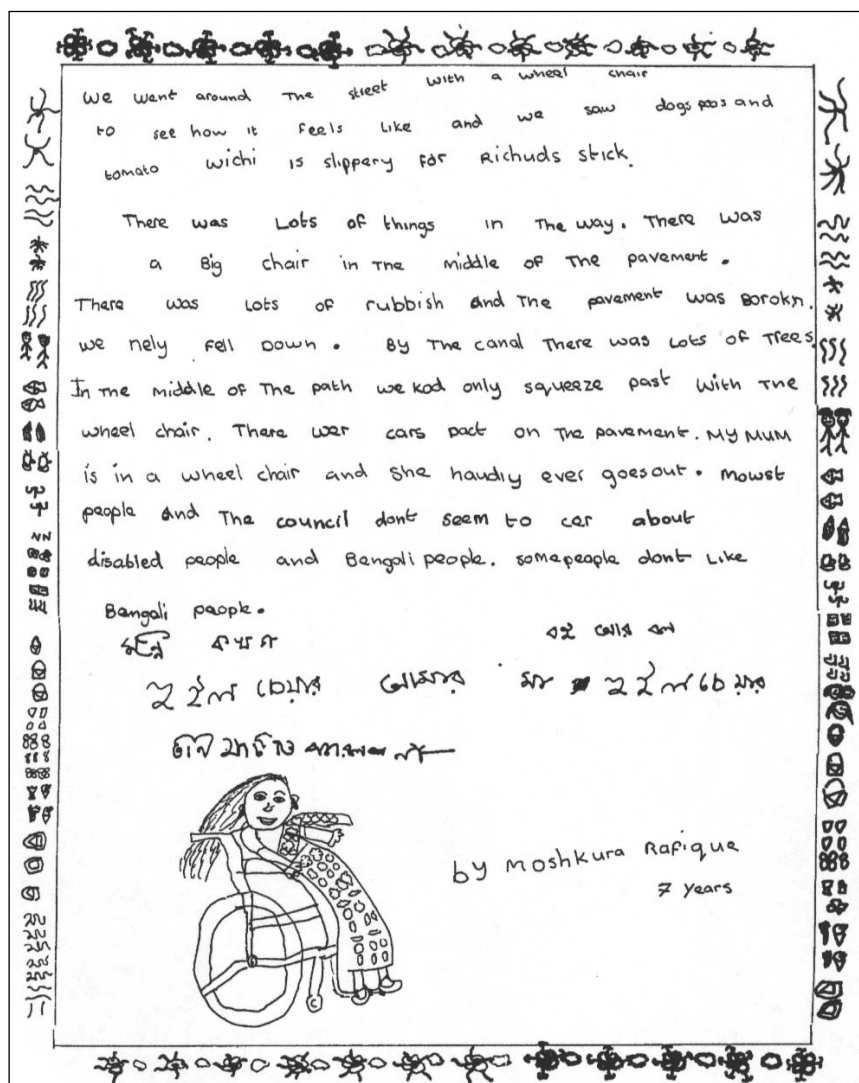 We went around The street with a wheel chair
to see how it feels Like and we saw dogs poos and
tomato wichi is slippery for Richuds stick.
There was Lots of things in The way. There was
a Big chair in The middle of The pavement.
There was Lots of rubbish and The pavement was Borokn.
we nely fell Down. By The canal There was Lots of Trees.
In The middle of The path we kod only squeeze past with The
wheel chair. There wer cars pact on The pavement. My MUM
is in a wheel chair and She haudly ever goesout. mowst
people and The council dont seem to cer about
disabled people and Bengali people. somepeople dont Like
Bangali people.
মা
by Moshkura Rafique
7 years